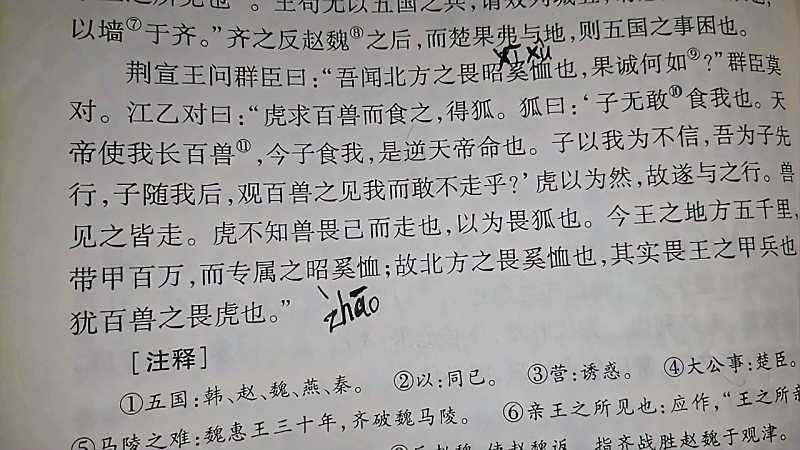 以墙⑦于齐。”齐之反赵魏⑧之后,而楚果弗与地,则五国之事困也。
荆宣王问群臣曰:“吾闻北方之畏昭奚恤也,果诚何如⑨?”群臣莫
xī xù
对。江乙对曰:“虎求百兽而食之,得狐。狐曰:‘子无敢⑩食我也。天
帝使我长百兽⑪,今子食我,是逆天帝命也。子以我为不信,吾为子先
行,子随我后,观百兽之见我而敢不走乎?’虎以为然,故遂与之行。兽
见之皆走。虎不知兽畏己而走也,以为畏狐也。今王之地方五千里,
带甲百万,而专属之昭奚恤;故北方之畏奚恤也,其实畏王之甲兵也
犹百兽之畏虎也。”
zhāo
[注释]
①五国:韩、赵、魏、燕、秦。 ②以:同已。 ③营:诱惑。 ④大公事:楚臣。
⑤马陵之难:魏惠王三十年,齐破魏马陵。 ⑥亲王之所见也:应作,“王之所亲
指齐战胜赵魏于观津。